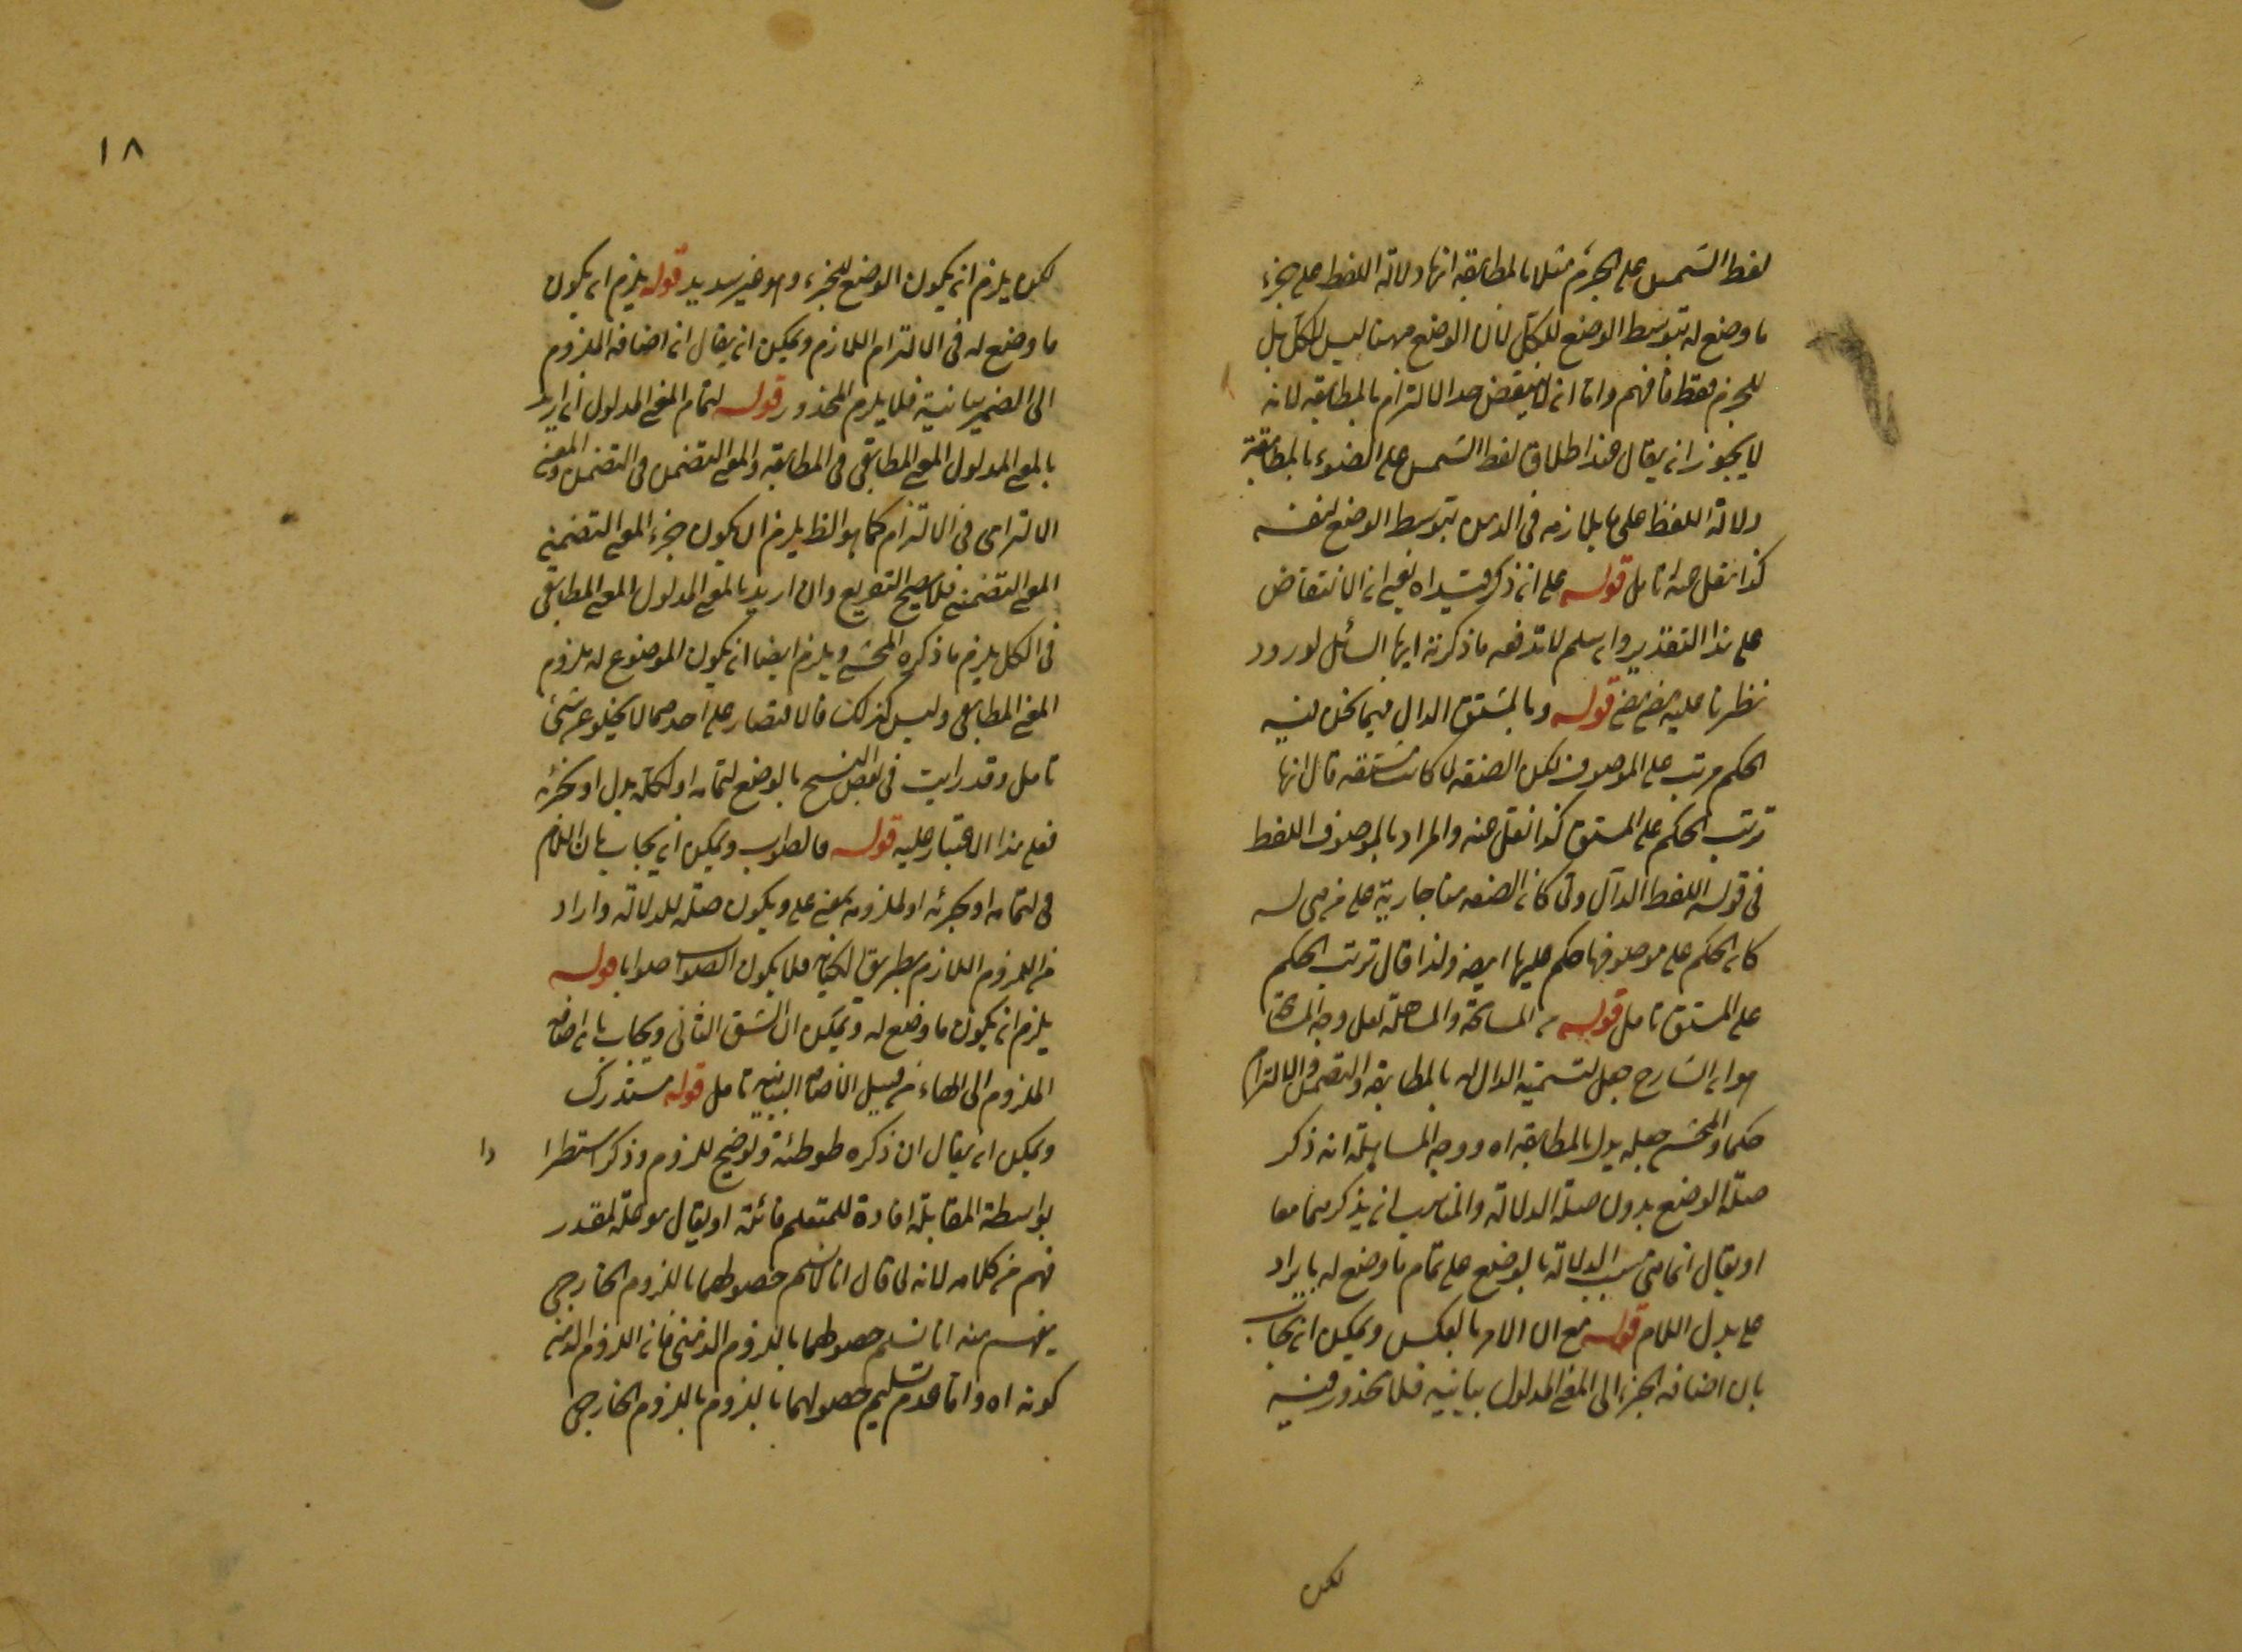 لفظ الشمس على الجرم مثلا بالمطابقة انها دلالة اللفظ على جزء
ما وضع له بتوسط الوضع للكل لان الوضع ههنا ليس للكل بل
للجرم فقط فافهم واما انه لا ينتقض حد الالتزام بالمطابقة لانه
لا يجوز ان يقال عند اطلاق لفظ الشمس على الضوء بالمطابقة
دلالة اللفظ على ما يلازمه فى الذهن بتوسط الوضع لنفسه
كذا نقل عنه تامل قوله على انه ذكر قيد اه يعنى ان الانتقاض
على هذا التقدير وان سلم لا تدفعه ما ذكرته ايها السائل لورود
نظرنا عليه قوله وبالمشتق الدال فيما نحن فيه
الحكم مرتب على الموصوف لكن الصفة لما كانت مشتقة قال انها
ترتب الحكم على المشتق كذا نقل عنه والمراد بالموصوف اللفظ
فى قوله اللفظ الدال ولما كان الصفة هنا جارية على من هى له
كان الحكم على موصوفها حكم عليها ايضا ولذا قال ترتب الحكم
على المشتق تامل قوله من المسامحة والمساهلة لعل وجه المسامحة
هو ان الشارح جعل لتسمية الدال له بالمطابقة والتضمن والالتزام
حكما والمحشى جعله يدل بالمطابقة اه ووجه المساهلة انه ذكر
صلة الوضع بدون صلة الدلالة والمناسب ان يذكرهما معا
او يقال انما هى بسبب الدلالة بالوضع على تمام ما وضع له بايراد
على بدل اللام قوله مع ان الامر بالعكس ويمكن ان يجاب
بان اضافة الجزء الى المعنى المدلول بيانية فلا محذور فيه
لكن
١٨
لكن يلزم ان يكون الوضع للجزء وهو غير سديد قوله يلزم ان يكون
ما وضع له فى الالتزام اللازم ويمكن ان يقال ان اضافة الملزوم
الى الضمير بيانية فلا يلزم المحذور قوله لتمام المعنى المدلول ان اريد
بالمعنى المدلول المعنى المطابقى فى المطابقة والمعنى التضمنى فى التضمن والمعنى
الالتزامى فى الالتزام كما هو الظ يلزم ان يكون جزء المعنى التضمنى
المعنى التضمنى فلا يصح التفريع وان اريد بالمعنى المدلول المعنى المطابقى
فى الكل يلزم ما ذكره المحشى ويلزم ايضا ان يكون الموضوع له ملزوم
المعنى المطابقى وليس كذلك فالاقتصار على احدهما لا يخلو عن شئ
تامل وقد رايت فى بعض النسخ بالوضع لتمامه او لكله بدل او لجزئه
فعلى هذا الاعتبار عليه قوله فالصواب ويمكن ان يجاب بان اللام
فى لتمامه او لجزئه او لملزومه بمعنى على ويكون صلة للدلالة واراد
من الملزوم اللازم بطريق الكناية فلا يكون الصواب صوابا قوله
يلزم ان يكون ما وضع له ويمكن ان الشق الثانى ويجاب بان اضافة
الملزوم الى الهاء من قبيل الاضافة البيانية تامل قوله مستدرك
ويمكن ان يقال ان ذكره طوطئة وتوضيح للزوم وذكر استطرا
دا
بواسطة المقابلة افادة للمتعلم فائدة او يقال هو علة لمقدر
فهم من كلامه لانه لما قال انا لا نسلم حصولهما باللزوم الخارجى
يفهم منه انا نسلم حصولهما باللزوم الذهنى فانه اللزوم الذهنى
كونه اه واما عدم تسليم حصولهما باللزوم باللزوم الخارجى